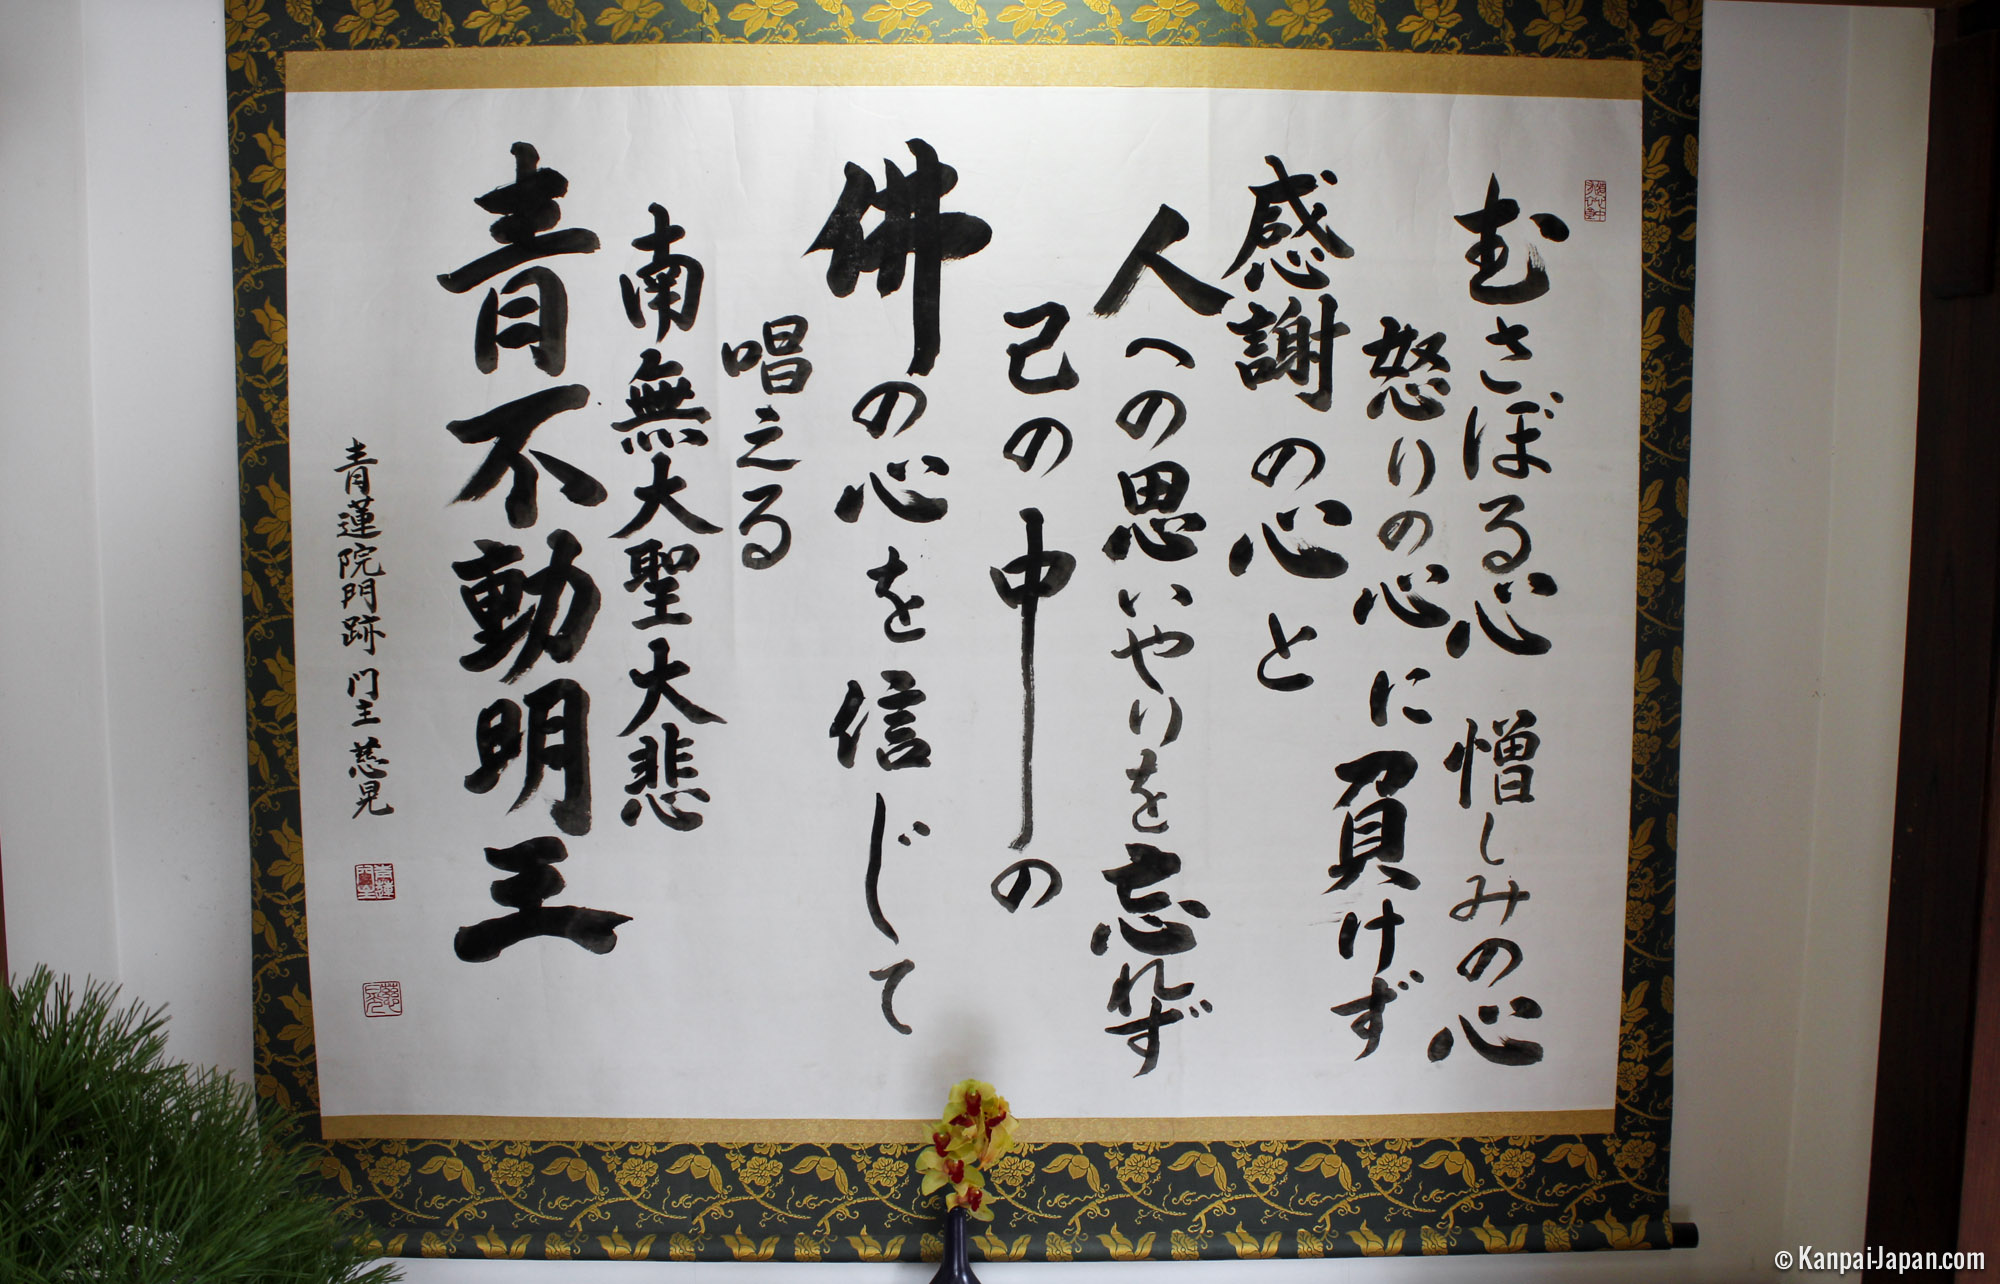 むさぼる心 憎しみの心
怒りの心に負けず
感謝の心と
人への思いやりを忘れず
己の中の
佛の心を信じて
唱える
南無大聖大悲
青不動明王
青蓮院門跡 門主 慈晃
© Kanpai-Japan.com